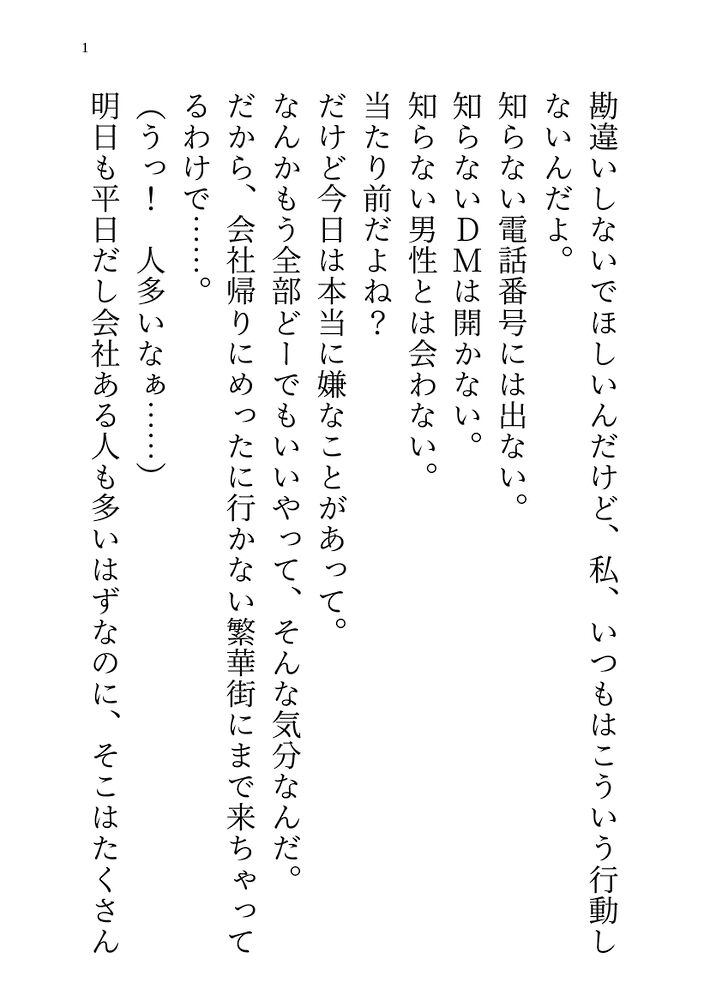 1
勘違いしないでほしいんだけど、私、いつもはこういう行動し
ないんだよ。
知らない電話番号には出ない。
知らないＤＭは開かない。
知らない男性とは会わない。
当たり前だよね？
だけど今日は本当に嫌なことがあって。
なんかもう全部どーでもいいやって、そんな気分なんだ。
だから、会社帰りにめったに行かない繁華街にまで来ちゃって
るわけで……。
（うっ！　人多いなぁ……）
明日も平日だし会社ある人も多いはずなのに、そこはたくさん